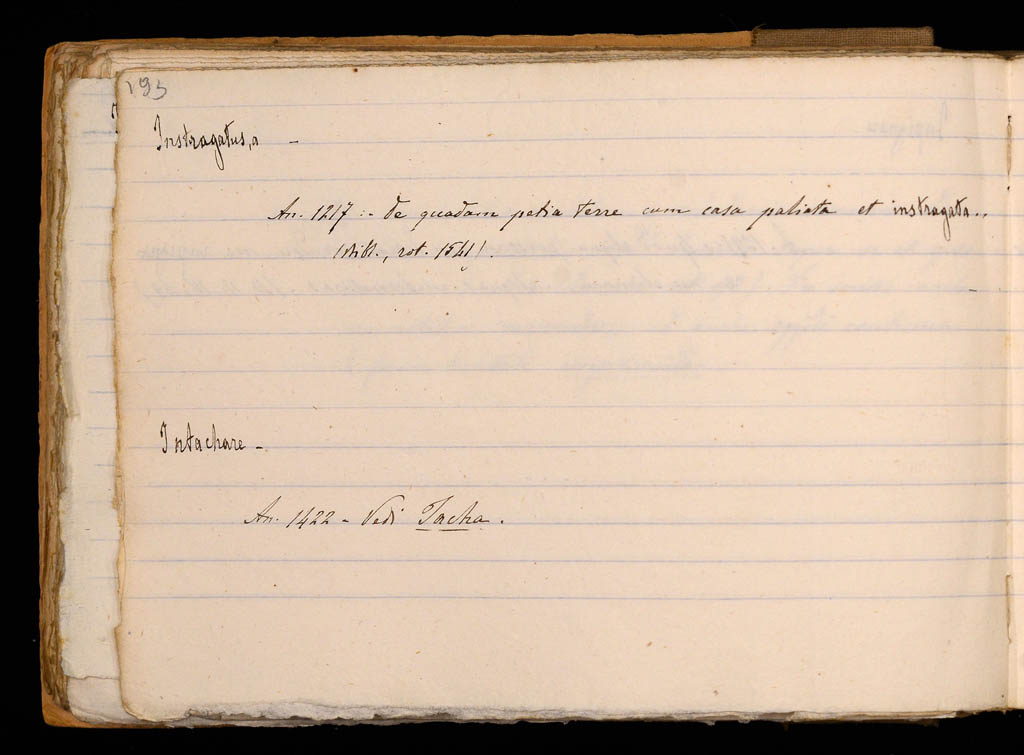 193
Instragatus, a -
An. 1217 :- de quadam petia terre cum casa paliata et instragata..
rot. 1541).
Intachare -
An. 1422 - Vedi Tacha.